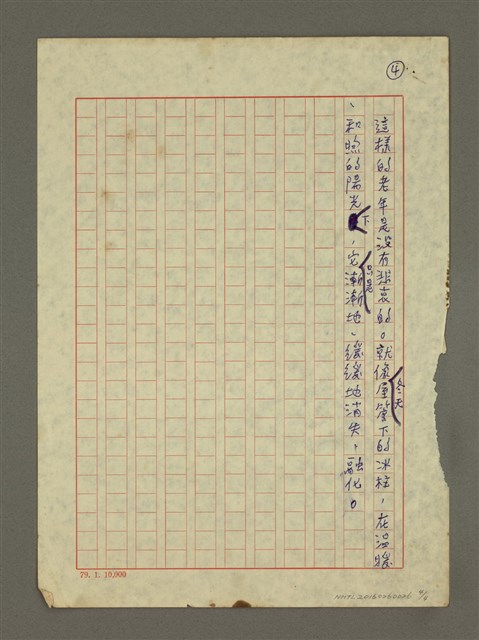 ④
這樣的老年是沒有悲哀的。就像冬天屋簷下的冰柱,在溫暖
、和煦的陽光下,它只是漸漸地、緩緩地消失,融化。
79. 1. 10,000